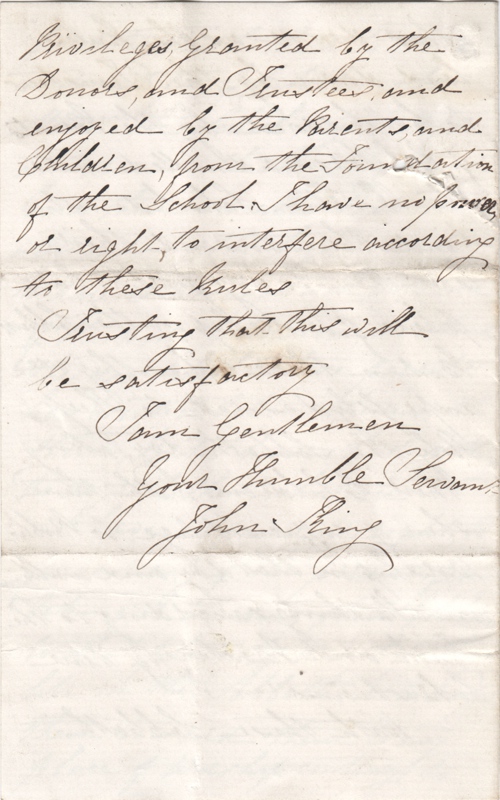 Privileges, Granted by the
Donors, and Trustees, and
enjoyed by the Parents, and
Children, from the Foundation
of the School. I have no power,
or right, to interfere according
to these Rules
Trusting that this will
be satisfactory
I am Gentlemen
Your Humble Servant
John King